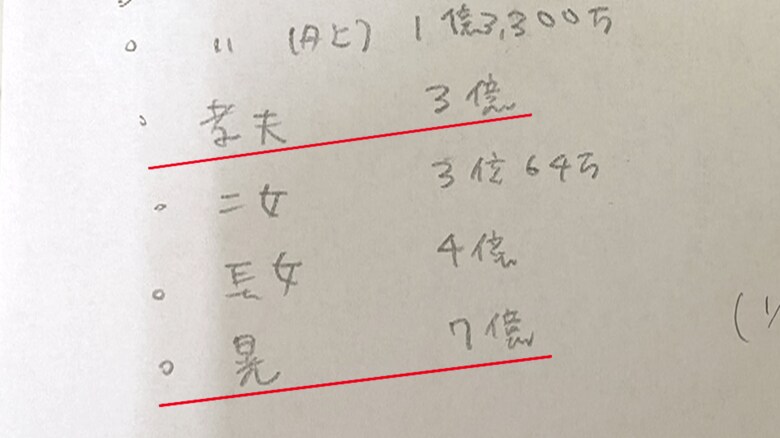 〃 (月上) 1億3,300万
孝夫 3億
二女 3位64万
長女 4億
晃 7億
(1/